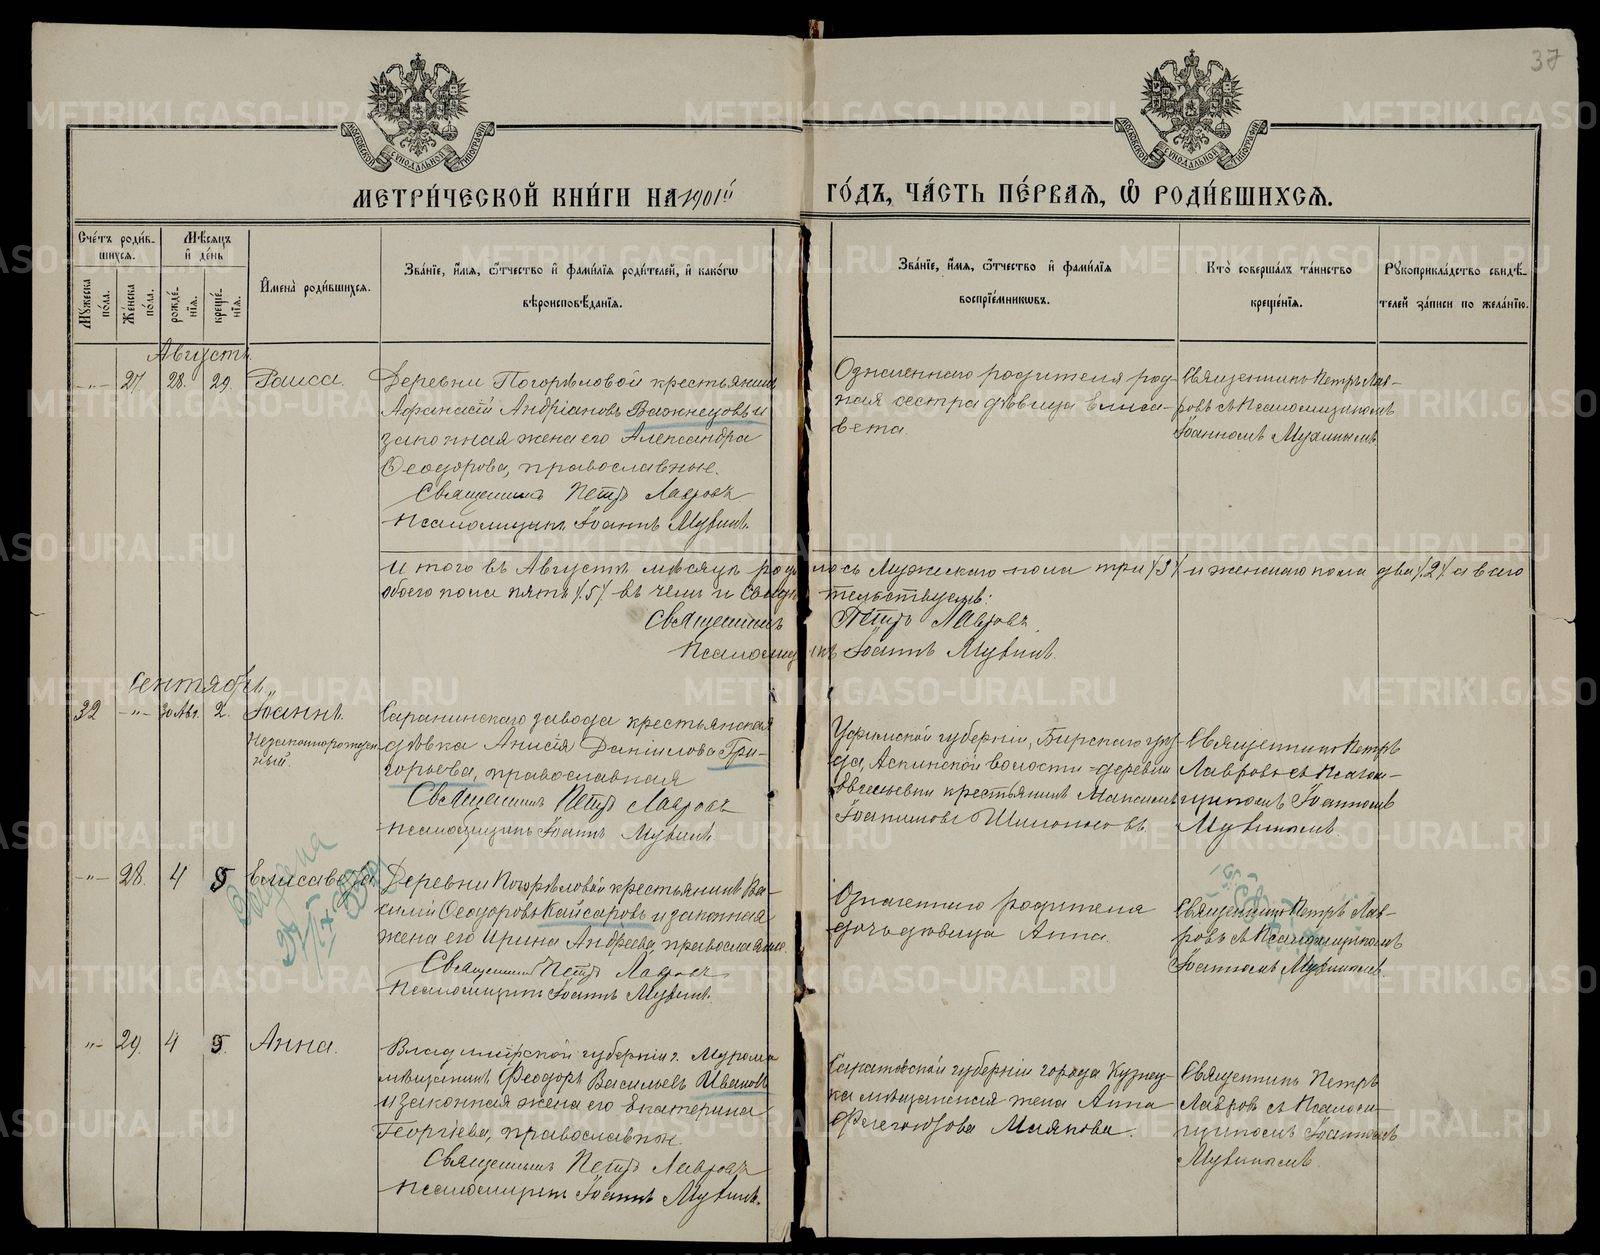 37
МОСКОВСКОЙ СѴНОДАЛЬНОЙ ТИПОГРАФІИ
МОСКОВСКОЙ СѴНОДАЛЬНОЙ ТИПОГРАФІИ
МЕТРИ́ЧЕСКОЙ КНИ́ГИ НА 1901й ГО́ДЪ, ЧА́СТЬ ПЕ́РВАЯ, Ѡ҆ РОДИ́ВШИХСЯ.
Счéтъ роди́в-
шихся.
Мꙋ́жеска по́ла.
Же́нска по́ла.
Мѣ́сяцъ
и҆ де́нь
рожде́-
нїя.
креще́-
нїя.
И҆мена̀ роди́вшихся.
Зва́нїе, и҆́мя, ѻ҆́тчество и҆ фами́лїя роди́телей, и҆ како́гѡ
вѣроисповѣ́данїя.
Зва́нїе, и҆́мя, ѻ҆́тчество и҆ фами́лїя
воспрїе́мникѡвъ.
Кто̀ соверша́лъ та́инство
креще́нїя.
Рꙋкоприкла́дство свидѣ́-
телей за́писи по жела́нїю.
Августъ.
-"- 27 28. 29. Раиса.
Деревни Погорѣловой крестьянинъ
Афанасій Андріановъ Важенцовъ и
законная жена его Александра
Ѳеодорова, православные.
Священникъ Петръ Лавровъ
Псаломщикъ Іоаннъ Мухинъ.
Означеннаго родителя род-
ная сестра дѣвица Елиса-
вета.
Священникъ Петръ Лав-
ровъ съ Псаломщикомъ
Іоанномъ Мухинымъ
Итого въ Августѣ мѣсяцѣ родилось Мужескаго пола три /3/ и женскаго пола два /2/ а всего
обоего пола пять /5/ въ чемъ и свидетельствуемъ:
Священникъ Петръ Лавровъ.
Псаломщикъ Іоаннъ Мухинъ.
Сентябрь
32 -"- 30 Авг. 2. Іоаннъ.
Незаконнорожден-
ный.
Саранинскаго завода крестьянская
дѣвка Анисія Даніилова Гри-
горьева, православная
Священникъ Петръ Лавровъ
Псаломщикъ Іоаннъ Мухинъ.
Уфимской губерніи, Бирскаго уѣз-
да, Аспинской волости деревни
крестьянинъ Максимъ
Іоанновъ
Священникъ Петръ
Лавровъ съ Псалом-
щикомъ Іоанномъ
Мухинымъ.
-"- 28. 4 5 Елисавета
Деревни Погорѣловой крестьянинъ Ва-
силій Ѳеодоровъ Кайсаровъ и законная
жена его Ирина Андреева, православные.
Священникъ Петръ Лавровъ
Псаломщикъ Іоаннъ Мухинъ.
Означеннаго родителя
дочь дѣвица Анна.
Священникъ Петръ Лав-
ровъ съ Псаломщикомъ
Іоанномъ Мухинымъ
-"- 29. 4 5. Анна.
Владимірской губерніи г. Мурома
мѣщанинъ Ѳеодоръ Васильевъ Ивановъ
и законная жена его Екатерина
Георгіева, православные.
Священникъ Петръ Лавровъ
Псаломщикъ Іоаннъ Мухинъ.
Саратовской губерніи города Кузнец-
ка мѣщанская жена Анна
Маякова.
Священникъ Петръ
Лавровъ съ Псалом-
щикомъ Іоанномъ
Мухинымъ.
METRIKI.GASO-URAL.RU